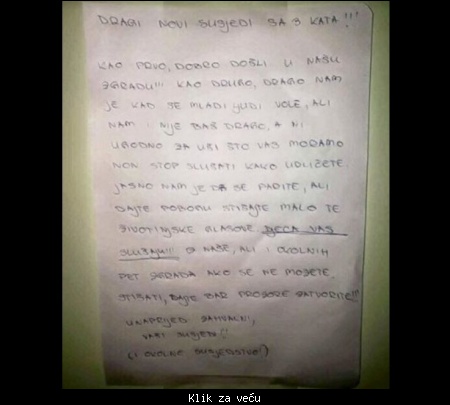 DRAGI NOVI SUSJEDI SA 3 KATA!!'
KAO PRVO, DOBRO DOŠLI U NAŠU
ZGRADU!!! KAO DRUGO, DRAGO NAM
JE KAD SE MLADI LJUDI VOLE, ALI
NAM NIJE BAŠ DRAGO, A NI
UGODNO ZA UŠI ŠTO VAS MORAMO
NON STOP SLUŠATI KAKO UDIŽETE.
JASNO NAM JE DA SE PADITE, ALI
DAJTE POBOGU STIŠAJTE MALO TE
ŽIVOTINJSKE GLASOVE DJECA VAS
SLUŠAJU!! I NAŠE, ALI I OKOLNIH
PET ZGRADA AKO SE NE MOŽETE
STIŠATI, BAR PROZORE ZATVORITE!!
UNAPRIJED ZAHVALNI,
VAŠI SUSJEDI!!
(I OKOLNO SUSJEDSTVO!)
Klik za veću